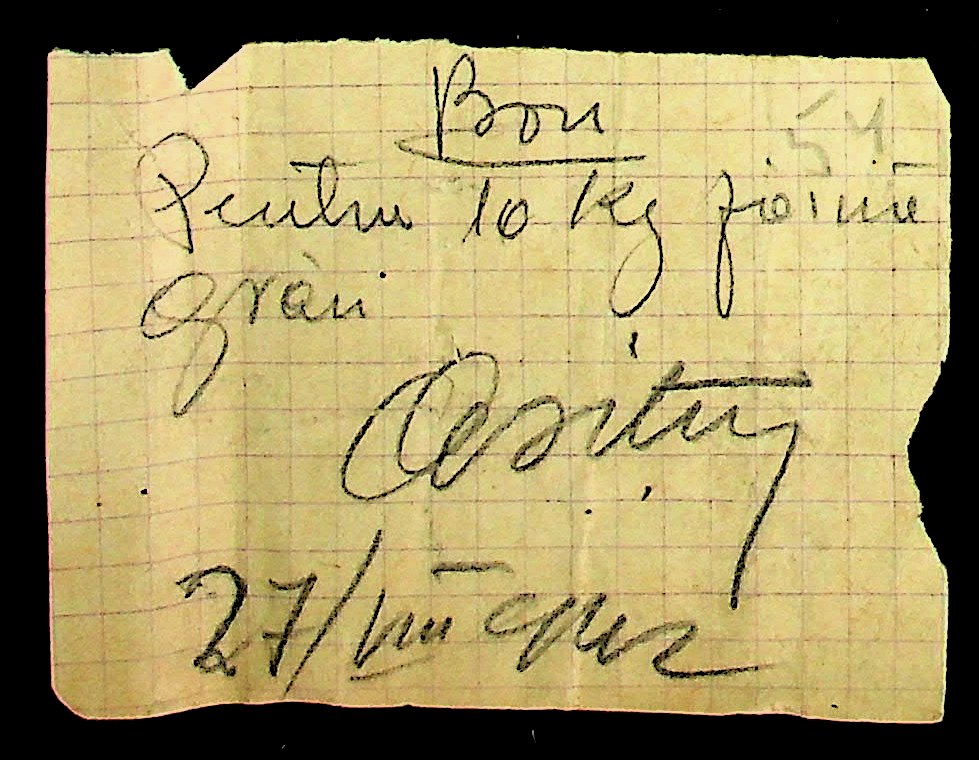 Bon
54
Pentru 10 kg făină
grâu
27/VIII